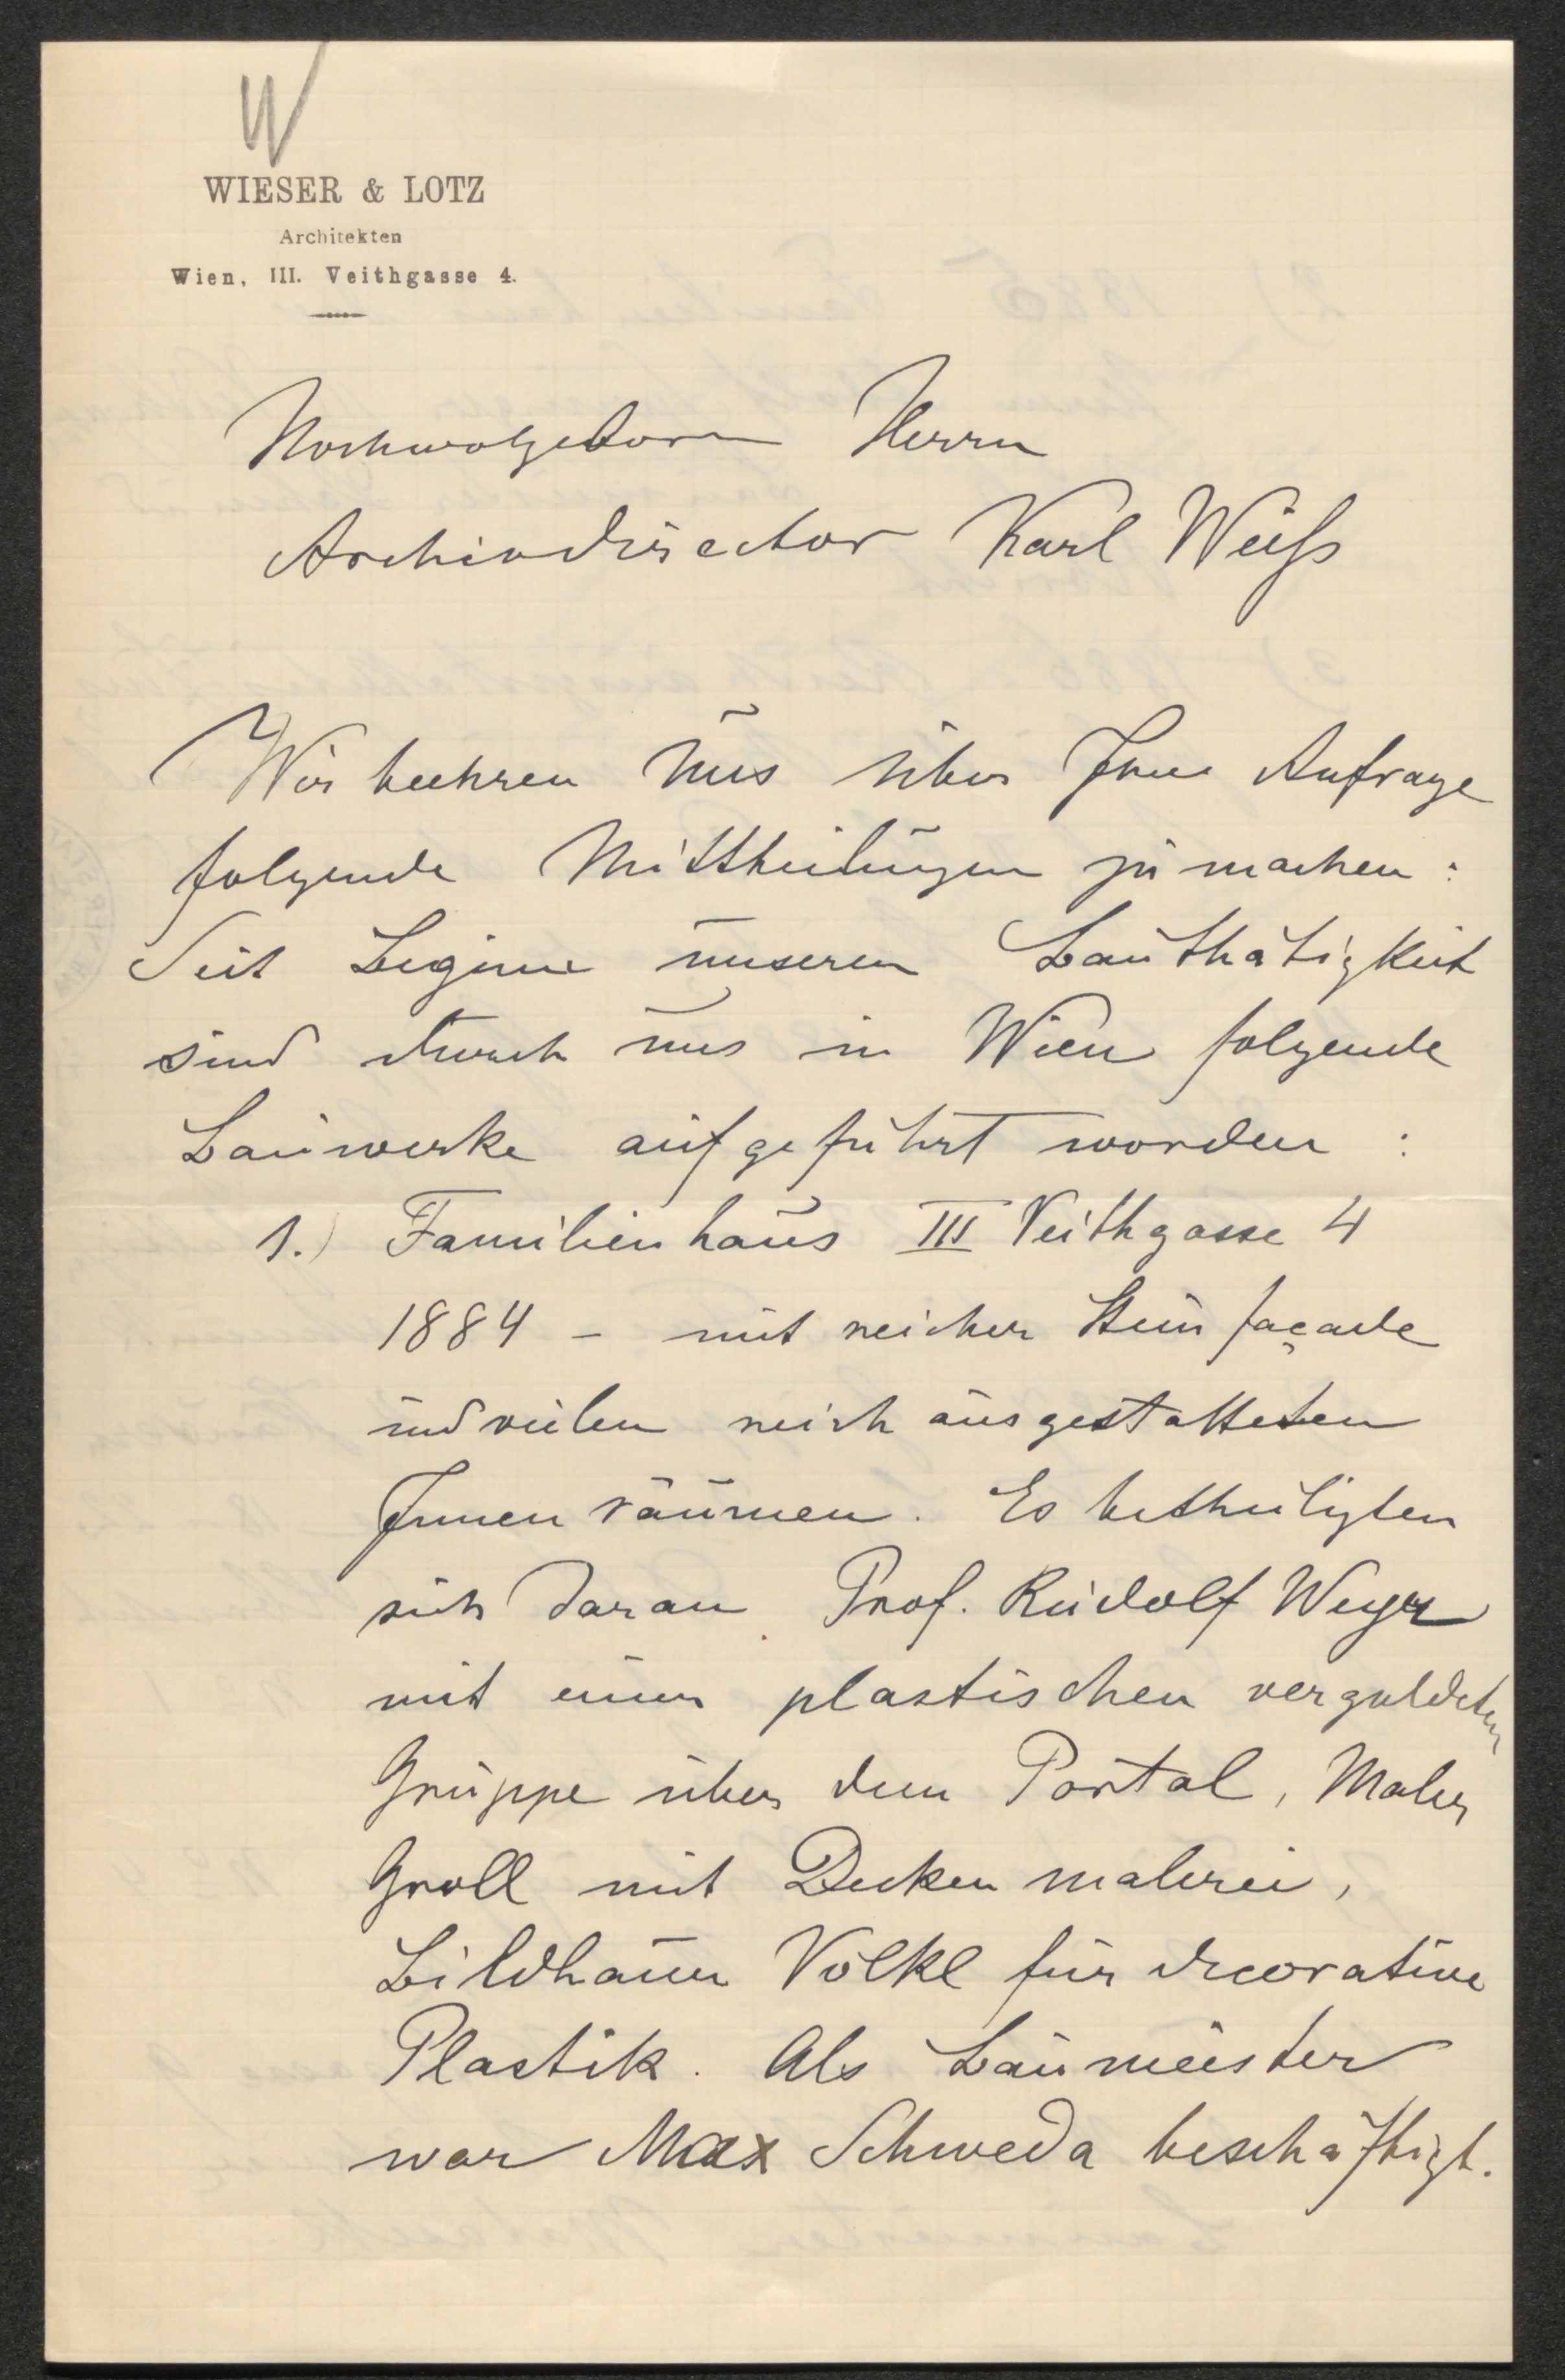 W
WIESER & LOTZ
Architekten
Wien, III. Veithgasse 4.
Hochwolgeborn Herrn
Archivdirector Karl Weiß
Wir beehren uns über Ihre Anfrage
folgende Mittheilungen zu machen:
Seit Beginne unserer Bauthätigkeit
sind durch uns in Wien folgende
Bauwerke aufgeführt worden:
1.) Familienhaus III Veithgasse 4
1884 - mit reicher Steinfaçade
und vielen reich ausgestatteten
Innenräumen. Es betheiligten
sich daran Prof. Rudolf Weyr
mit einer plastischen vergoldeten
Gruppe über dem Portal, Maler
Groll mit Deckenmalerei,
Bildhauer Völkl für decorative
Plastik. Als Baumeister
war Max Schweda beschäftigt.